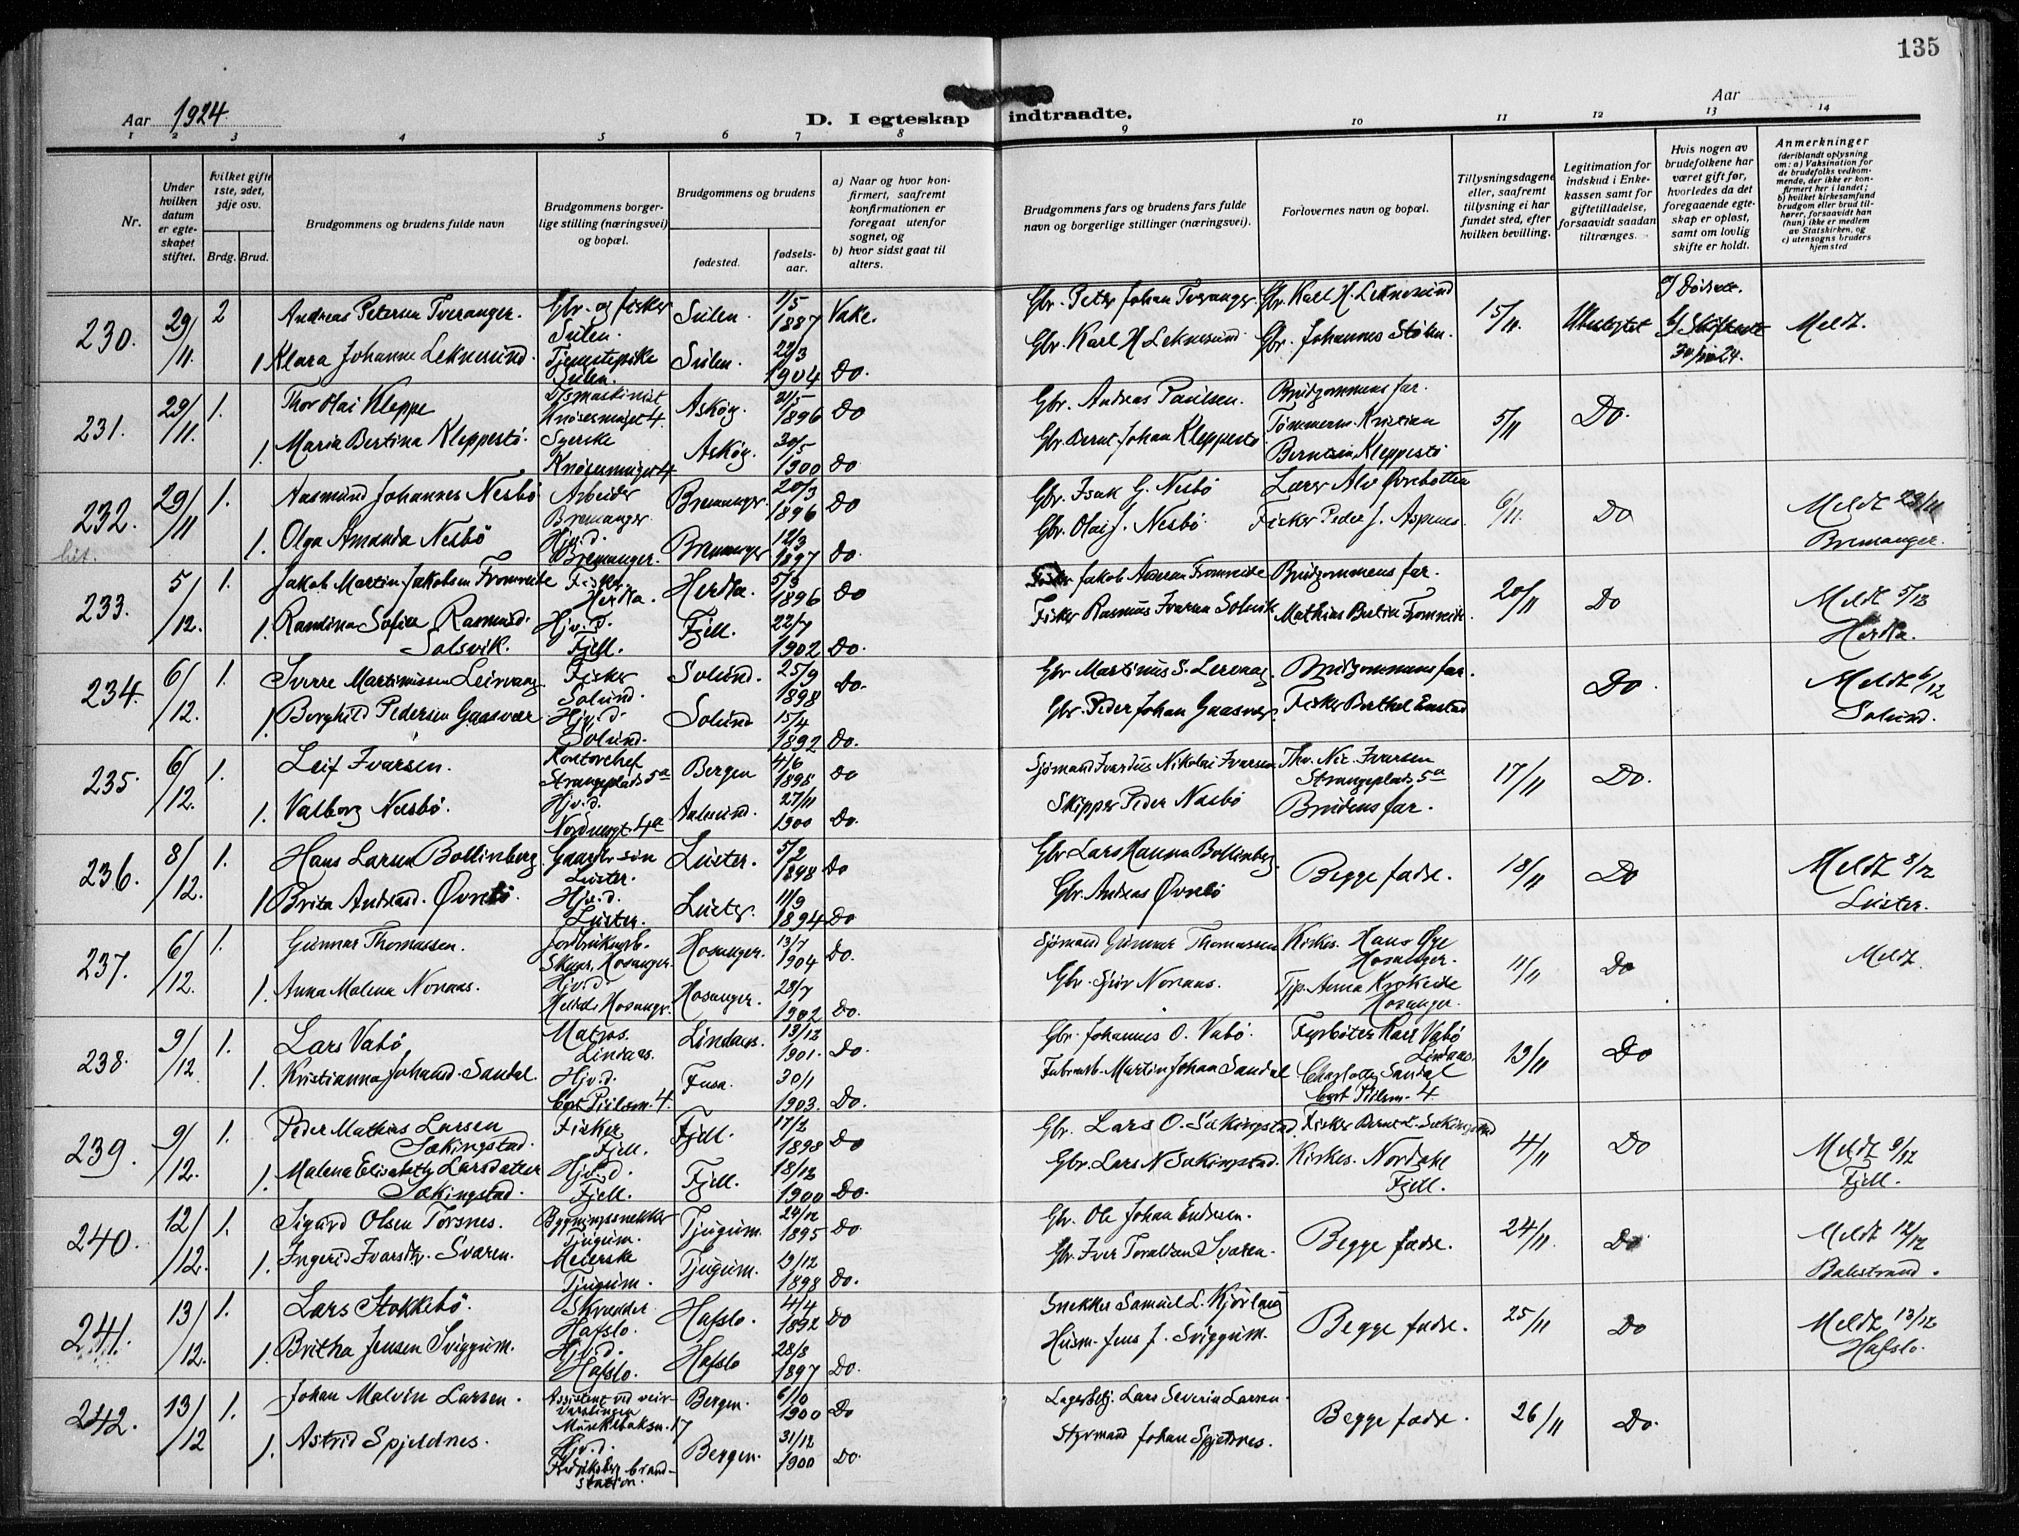 135
Aar 1924.
D. I egteskap indtraadte.
Aar
1 2 3 4 5 6 7 8 9 10 11 12 13 14
Nr.
Under hvilken datum er egteskapet stiftet.
Hvilket gifte 1ste, 2det, 3dje osv.
Brdg. Brud.
Brudgommens og brudens fulde navn
Brudgommens borgerlige stilling (næringsvei) og bopæl.
Brudgommens og brudens
fødested.
fødselsaar.
a) Naar og hvor konfirmert, saafremt konfirmationen er foregaat utenfor sognet, og
b) hvor sidst gaat til alters.
Brudgommens fars og brudens fars fulde navn og borgerlige stillinger (næringsvei).
Forlovernes navn og bopæl.
Tillysningsdagene eller, saafremt tillysning ei har fundet sted, efter hvilken bevilling.
Legitimation for indskud i Enkekassen samt for giftetilladelse, forsaavidt saadan tiltrænges.
Hvis nogen av brudefolkene har været gift før, hvorledes da det foregaaende egteskap er opløst, samt om lovlig skifte er holdt.
Anmerkninger
(deriblandt oplysning om: a) Vaksination for de brudefolks vedkommende, der ikke er konfirmert her i landet; b) hvilket kirkesamfund brudgom eller brud tilhører, forsaavidt han (hun) ikke er medlem av Statskirken, og c) utensogns bruders hjemsted
230. 29/11. 2 Andreas Petersen Tveranger. Gbr. og fisker Sulen. Sulen. 1/5 1887 Vake. Gbr. Peter Johan Tveranger Gbr. Karl H. Leknesund 15/11. Ubeslegtet Meldt.
1. Klara Johanne Leknesund. Tjenestepike Sulen. Sulen. 22/3 1904 Do. Gbr. Karl H Leknesund Gbr. Johannes Stølen.
231. 29/11. 1. Thor Olai Kleppe Knøsesmuget 4. Askøy. 21/5 1896 Do Gbr. Andreas Paulsen. Brudgommens far. 5/11 Do.
1. Marie Bertina Kleppestø. Syerske Knøsesmuget 4 Askøy. 30/5 1900 Do Gbr. Bernt Johan Kleppestø Tømmerm. Kristian Berntsen Kleppestø
232. 29/11 1. Aasmund Johannes Nesbø Arbeider Bremanger. Bremanger. 20/3 1896 Do Gbr. Isak G. Nesbø Lærer Alv Øvrebotten 6/11. Do Meldt 29/11 Bremanger.
1. Olga Amanda Nesbø Hjv.d. Bremanger. Bremanger 12/3 1897 Do. Gbr. Olai J. Nesbø. Fisker Peder J. Aspenes.
233. 5/12. 1. Jakob Martin Jakobsen Fromreide Fisker. Herdla. Herdla. 5/3 1896 Do Jakob Andersen Fromreide Brudgommens far. 20/11 Do Meldt 5/12 Herdla.
1. Randina Sofie Rasmusd. Solsvik. Hjv.d. Fjell. Fjell. 22/7 1902 Do. Fisker Rasmus Iversen Solsvik Mathias Fromreide.
234. 6/12. 1. Sverre Martinussen Leirvaag Fisker Solund. Solund. 25/9 1898 Do. Gbr Martinus S. Lervaag Brudgommens far. Do Meldt 6/12 Solund.
1. Borghild Pedersen Gaasvær Hjv.d. Solund. Solund 15/4 1892 Do. Gbr. Peder Johan Gaasvær. Fisker Berthel
235. 6/12. 1. Leif Ivarsen. Kontorchef Strangeplads 5a Bergen 4/6 1898 Do Sjømand Ivardus Nikolai Ivarsen Thv. Nic. Ivarsen Strangeplads 5a 17/11 Do.
1. Valborg Nesbø. Hjv.d. Nordnesgt 4a Aalesund. 27/11 1900 Do. Skipper Peder Nesbø Brudens far.
236. 8/12. 1. Hans Larsen Bollinberg Gaardbr søn Luster. Luster. 5/2 1898 Do Gbr Lars Hansen Bollinberg. Begge fædre. 18/11 Do Meldt 8/12 Luster.
1 Brita Andersd. Øvrebø. Hjv.d. Luster. Luster. 11/9 1894 Do Gbr. Andreas Øvrebø
237. 6/12. 1. Gunnar Thomassen. Hosanger. Hosanger. 13/7 1904 Do. Sjømand Gunnar Thomassen Kirkes. Hans Øye Hosanger. 11/11 Do Meldt.
1. Anna Malena Nonaas. Hjv.d. Hosanger. Hosanger. 28/7 1902 Do. Gbr. Sjur Nonaas. Tjp. Anna Hosanger.
238. 9/12 1. Lars Vabø Matros. Lindaas. Lindaas. 13/12 1901. Do. Gbr. Johannes O. Vabø. Fyrbøter Karl Vabø Lindaas 13/11 Do
1. Kristianna Johansd. Sandal. Hjv.d. Cort Piilsm. 4. Fusa. 30/1 1903. Do. Fabrarb. Martin Johan Sandal Charlotte Sandal Cort Piilsm. 4
239. 9/12. 1. Peder Mathias Larsen Sækingstad. Fisker Fjell. Fjell. 17/2 1898 Do Gbr. Lars O. Sækingstad. Fisker Bernt L. Sækingstad 4/11 Do Meldt 9/12 Fjell.
1. Malena Elisabeth Larsdatter Sækingstad. Hjv.d. Fjell. Fjell. 18/12 1900 Do. Gbr. Lars N Sækingstad. Kirkes. Nordahl Fjell.
240. 12/12. 1. Sigurd Olsen Torsnes. Bygningssnekker Tjugum. Tjugum. 24/12 1895 Do Gbr. Ole Johan Endresen. Begge fædre. 24/11 Do Meldt 12/12 Balestrand.
1. Ingerid Ivarsdtr. Sværen. Meierske Tjugum. Tjugum. 9/12 1898 Do. Gbr. Iver Toraldsen Sværen.
241. 13/12. 1. Lars Stokkebø. Skrædder Hafslo. Hafslo. 4/4 1892 Do Snekker Samuel L. Kjørlaug Begge fædre. 25/11 Do Meldt 13/12 Hafslo.
1. Britha Jensen Sviggum. Hjv.d. Hafslo. Hafslo 28/8 1897 Do. Husm. Jens J. Sviggum.
242. 13/12 1. Johan Malvin Larsen. Assistent ved veirvarslingen Munkebaksm. 17 Bergen. 6/10 1900 Do Lagerbetj. Lars Severin Larsen. Begge fædre. 26/11 Do.
1. Astrid Spjeldnes. Hjv.d. Fredriksberg brandstation. Bergen. 31/12 1900 Do. Styrmand Johan Spjeldnes.